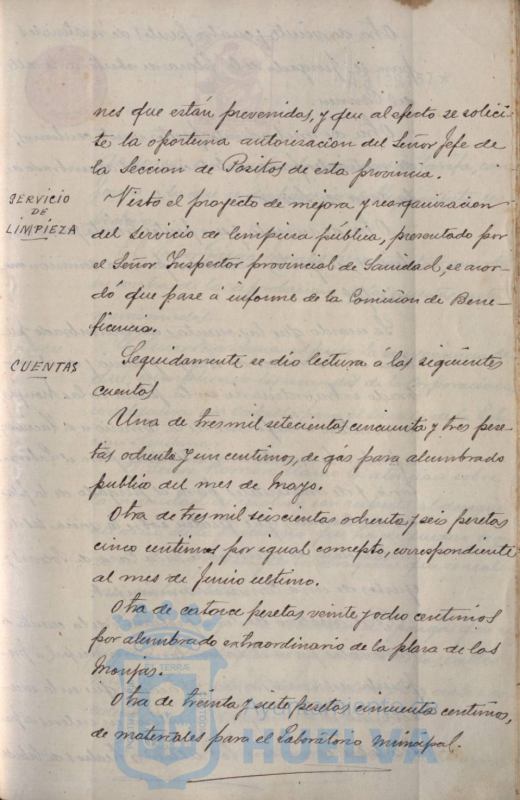 nes que están prevenidas, y que al efecto se solici-
te la oportuna autorización del Señor Jefe de
la Sección de Pósitos de esta provincia.
SERVICIO
DE
LIMPIEZA
Visto el proyecto de mejora y reorganización
del servicio de limpieza pública, presentado por
el Señor Inspector provincial de Sanidad, se acor-
dó que pase á informe de la Comisión de Bene-
ficencia.
CUENTAS
Seguidamente se dió lectura á las siguientes
cuentas
Una de tres mil setecientas cincuenta y tres pese-
tas ochenta y un centimos, de gás para alumbrado
publico del mes de Mayo.
Otra de tres mil seiscientas ochenta y seis pesetas
cinco centimos por igual concepto, correspondiente
al mes de Junio ultimo.
Otra de catorce pesetas veinte y ocho centimos
por alumbrado extraordinario de la plaza de las
Monjas.
Otra de treinta y siete pesetas cincuenta centimos,
de materiales para el Laboratorio municipal.
HUELVA